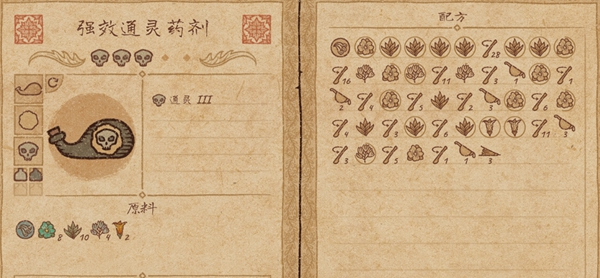 强效通灵药剂
通灵 III
原料
8 10 4 2
配方
28
16 11 3 1 1
2 4 5 2 3 6
4 3 6 11 3
3 5 1 1